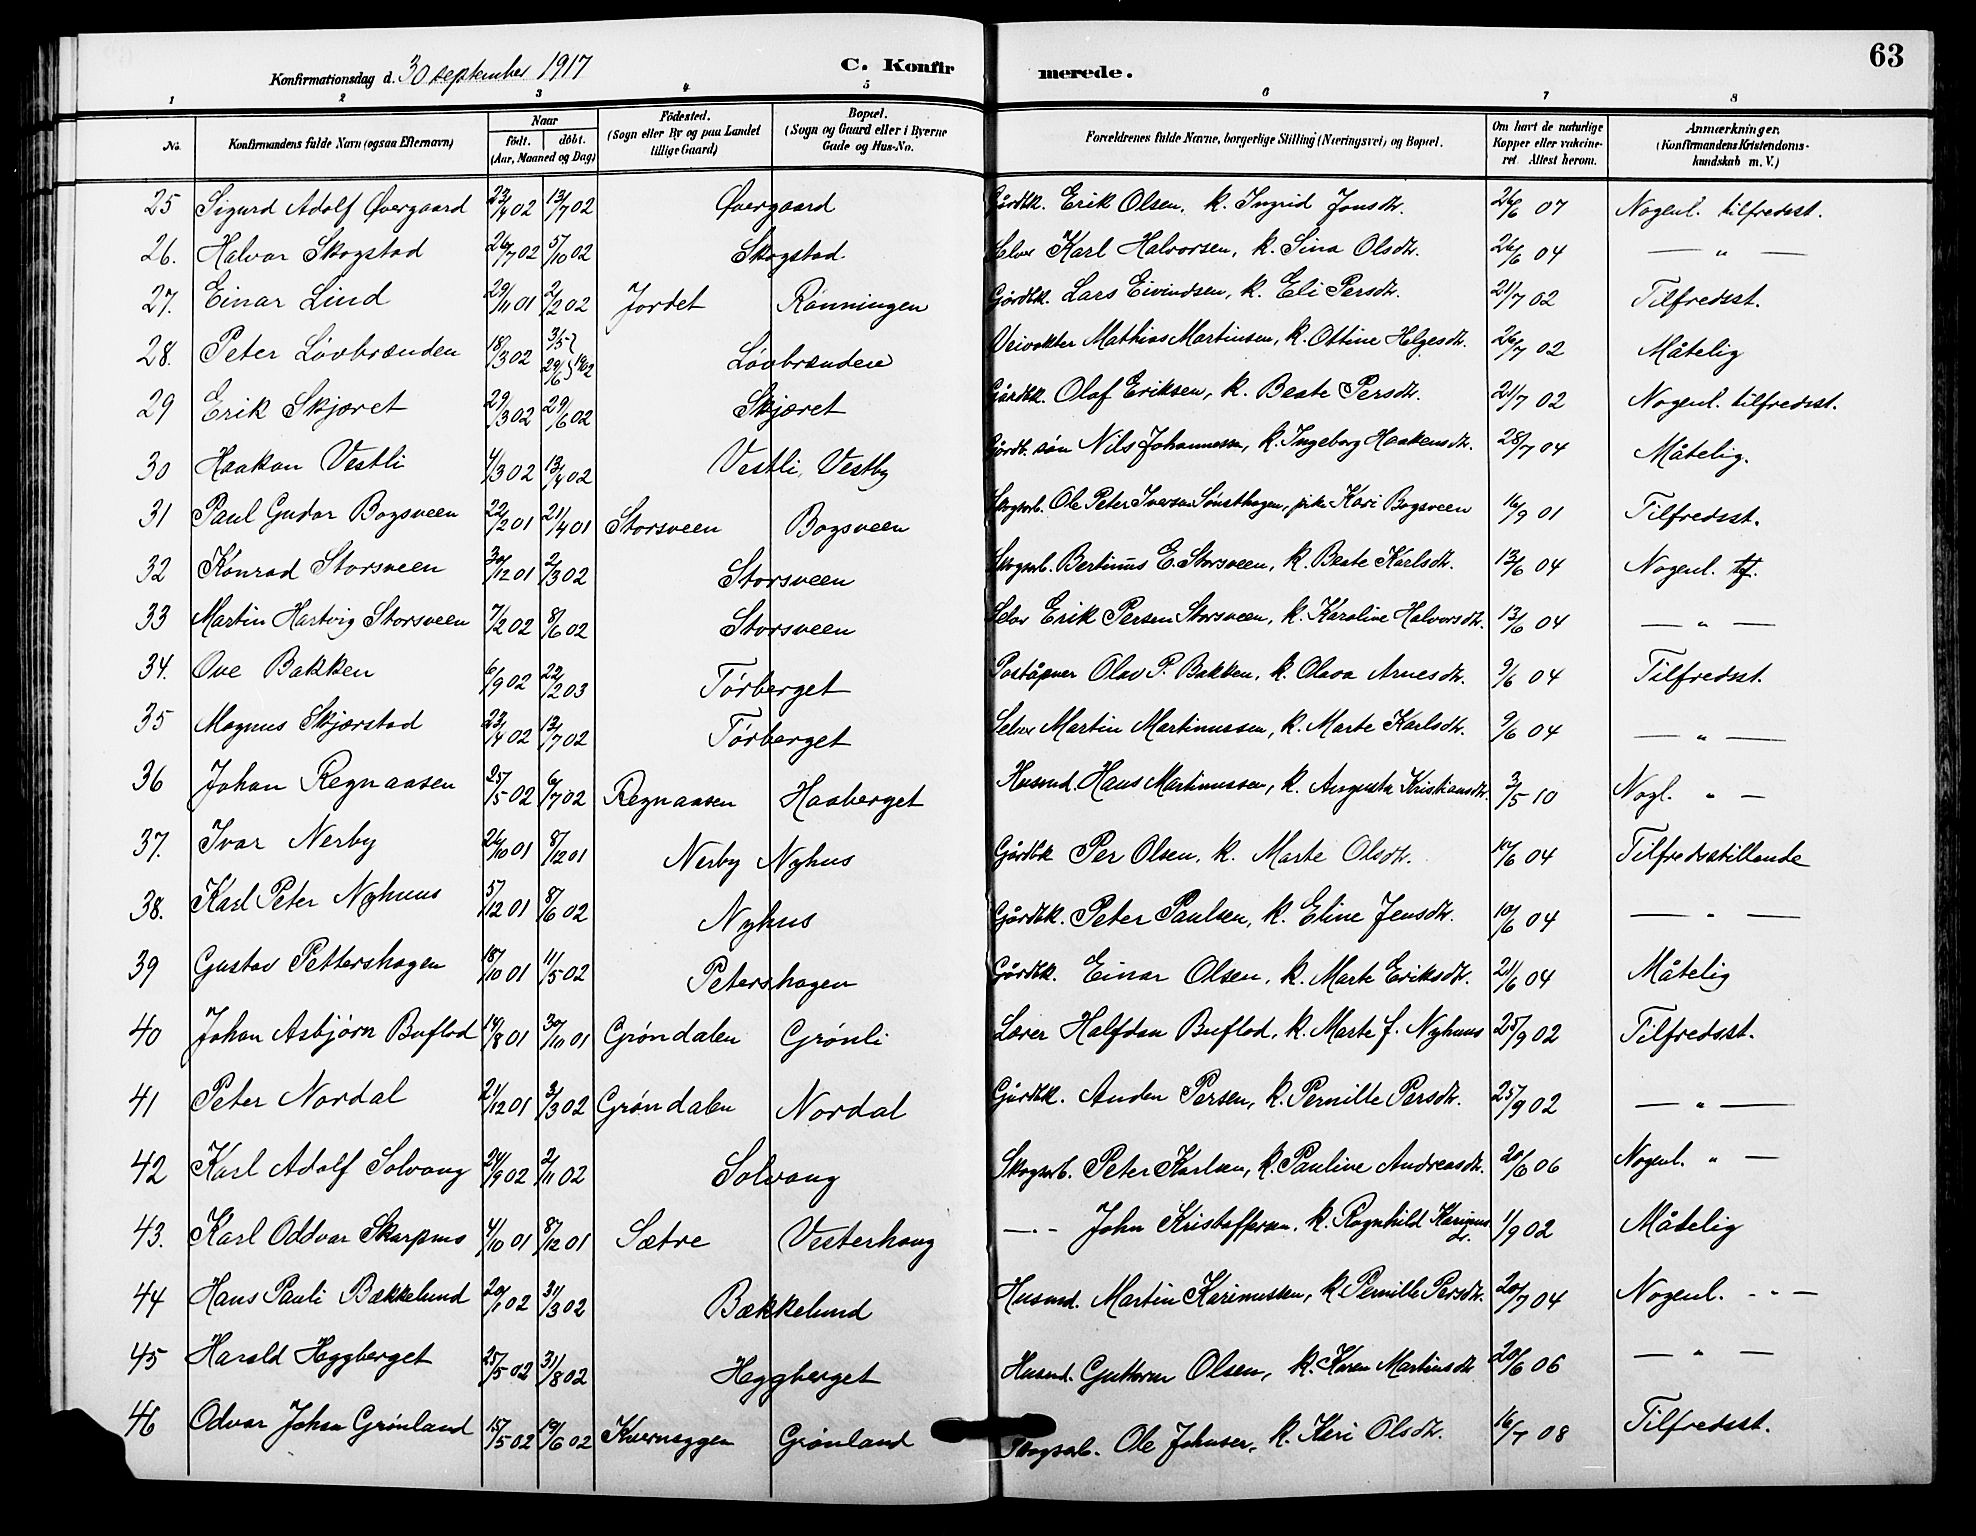 63
Konfirmationsdag d. 30 september 1917 C. Konfirmerede.
1 2 3 4 5 6 7 8
No. Konfirmandens fulde Navn (ogsaa Efternavn) Naar født. døbt. (Aar, Maaned og Dag) Fødested. (Sogn eller By og paa Landet tillige Gaard) Bopæl. (Sogn og Gaard eller i Byerne Gade og Hus-No. Forældrenes fulde Navne, borgerlige Stilling (Næringsvei) og Bopæl. Om havt de naturlige Kopper eller vaksineret. Attest herom. Anmærkninger. (Konfirmandens Kristendomskundskab m. V.)
25 Sigurd Adolf Øvergaard 23/4 02 13/7 02 Øvergaard Gårdbk. Erik Olsen, k. Ingrid Jonsdtr. 26/6 07 Nogenl. tilfredsst.
26. Halvar Skogstad 26/7 02 5/10 02 Skogstad Selve Karl Halvorsen, k. Sina Olsdtr. 26/6 04 — " —
27. Einar Lind 29/11 01 2/2 02 Jordet Rønningen Gårdbk. Lars Eivindsen, k. Eli Persdtr. 21/7 02 Tilfredsst.
28. Peter Løvbrænden 18/3 02 3/5 29/6 } 1902 Løvbrænden Veivokter Mathias Martinsen, k. Ottine Helgesdtr. 26/7 02 Måtelig
29 Erik Skjæret 29/3 02 29/6 02 Skjæret Gårdbk. Olaf Eriksen, k. Beate Persdtr. 21/7 02 Nogenl. tilfredsst.
30 Haakon Vestli 4/3 02 13/4 02 Vestli, Vestby Gårdb. søn Nils Johannessen, k. Ingeborg Haakensdtr. 28/7 04 Måtelig.
31 Paul Gudar Bogsveen 22/2 01 21/4 01 Storsveen Bogsveen Skogsarb. Ole Peter Iversen Sønsthagen, pike Kari Bogsveen 16/9 01 Tilfredsst.
32 Konrad Storsveen 30/12 01 2/3 02 Storsveen Skogsarb. Bertinus E. Storsveen, k. Beate Karlsdtr. 13/6 04 Nogenl. tf.
33 Martin Hartvig Storsveen 7/2 02 8/6 02 Storsveen Selve Erik Persen Storsveen, k. Karoline Halvorsdtr. 13/6 04 — " —
34. Ove Bakken 6/9 02 22/2 03 Tørberget Poståpner Olav P. Bakken, k. Olava Arnesdtr. 9/6 04 Tilfredsst.
35 Magnus Skjærstad 23/4 02 13/7 02 Tørberget Selve Martin Martinussen, k. Marte Karlsdtr. 9/6 04 — " —
36 Johan Regnaasen 25/5 02 6/7 02 Regnaasen Haaberget Husmd. Hans Martinussen, k. Augusta Kristiansdtr. 3/5 10 Nogl. " —
37. Ivar Nerby 26/10 01 8/12 01 Nerby Nyhus Gårdbk Per Olsen, k. Marte Olsdtr. 10/6 04 Tilfredsstillende
38. Karl Peter Nyhuus 5/12 01 8/6 02 Nyhus Gårdbk. Peter Paulsen, k. Eline Jensdtr. 10/6 04 — " —
39 Gustav Pettershagen 18/10 01 11/5 02 Petershagen Gårdbk. Einar Olsen, k. Marte Eriksdtr. 21/6 04 Måtelig
40 Johan Asbjørn Buflod 14/8 01 30/10 01 Grøndalen Grønli Lærer Halfdan Buflod, k. Marte f. Nyhuus 25/9 02 Tilfredsst.
41 Peter Nordal 21/12 01 3/3 02 Grøndalen Nordal Gårdbk. Anden Persen, k. Pernille Persdtr. 25/9 02 — " —
42 Karl Adolf Solvang 24/9 02 2/11 02 Solvang Skogsarb. Peter Karlsen, k. Pauline Andreasdtr. 20/6 06 Nogenl. " —
43. Karl Oddvar Skarpnes 4/10 01 8/12 01 Sætre Vesterhaug — " — John Kristoffersen, k. Ragnhild Karinusdr. 1/9 02 Måtelig
44 Hans Pauli Bækkelund 20/1 02 31/3 02 Bækkelund Husmd. Martin Karinussen, k. Pernille Persdtr. 20/7 04 Nogenl. - " —
45 Harald Heggberget 25/5 02 31/8 02 Heggberget Husmd. Guttorm Olsen, k. Karen Martinsdtr 20/6 06 — " —
46 Odvar Johan Grønland 15/5 02 19/6 02 Kværneggen Grønland Skogsarb. Ole Johnsen, k. Kari Olsdtr. 16/7 08 Tilfredsst.